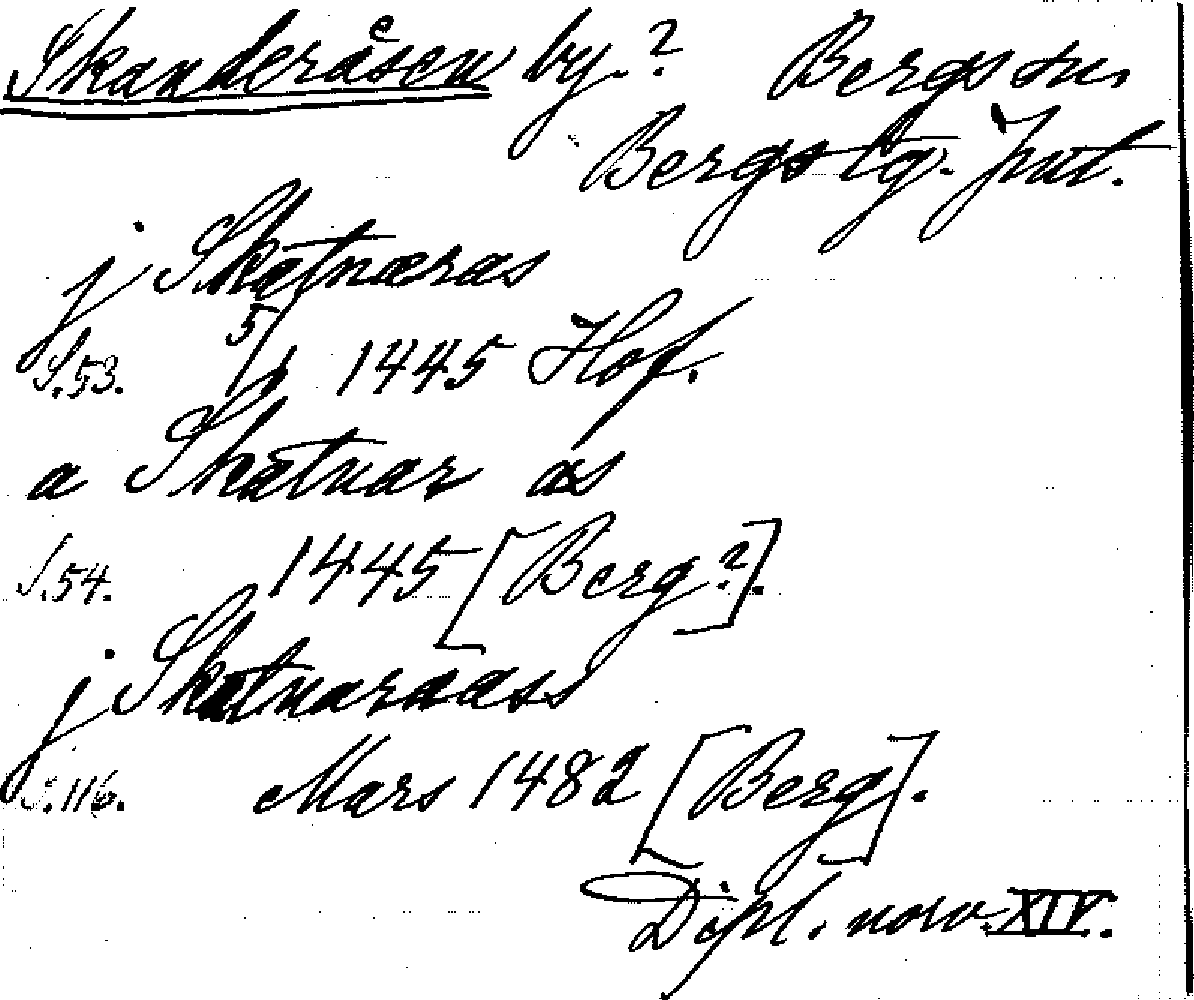 Skanderåsen by? Bergs sn.
Bergs tg. Jmt.
j Skatnæras
S.53. 5/1 1445 Hof.
a Skatnar as
S.54. 1445 [Berg?].
j Skatnaraass
S.116. Mars 1482 [Berg].
Dipl. norv. XIV.